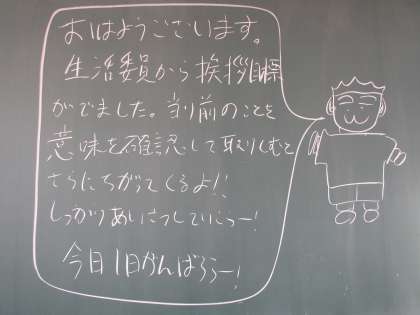 おはようございます。
生活委員から挨拶目標
がでました。当り前のことを
意味を確認して取りくむと
さらにちがってくるよ!!
しっかりあいさつしていこうー!
今日1日がんばろうー!